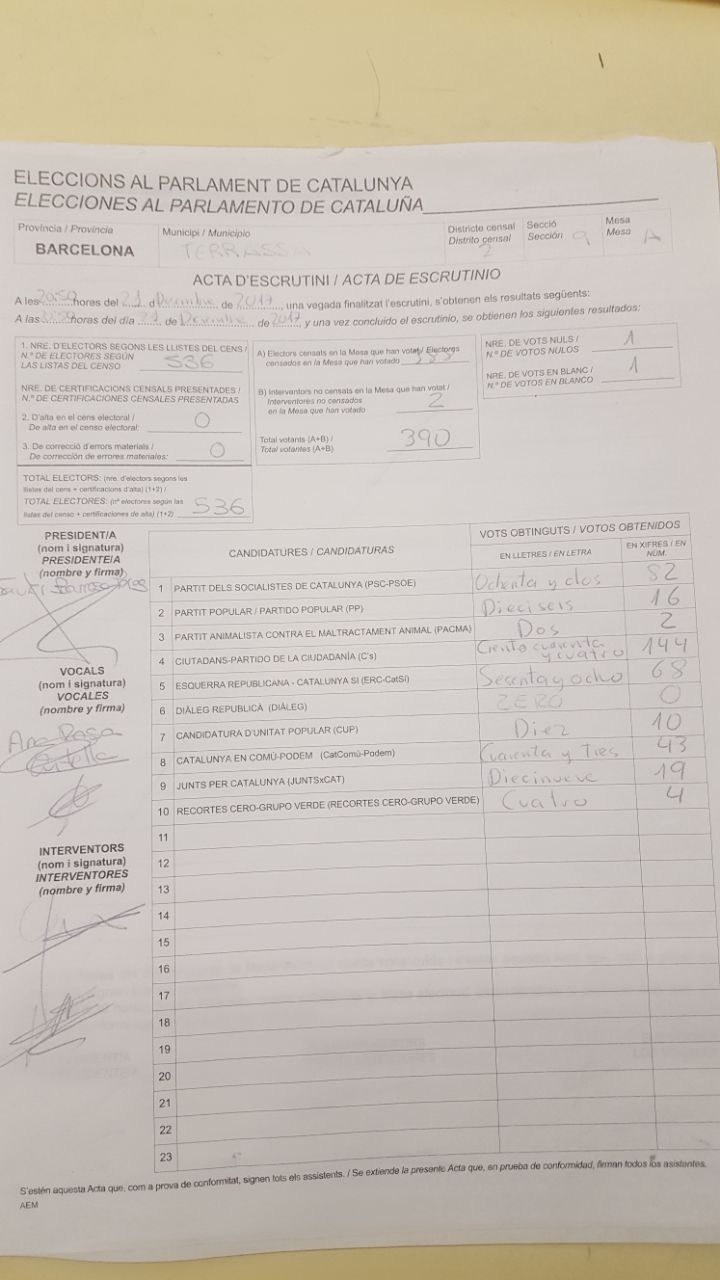 ELECCIONS AL PARLAMENT DE CATALUNYA
ELECCIONES AL PARLAMENTO DE CATALUÑA
Província / Provincia
BARCELONA
Municipi / Municipio
TERRASSA
Districte censal
Distrito censal
2
Secció
Sección 9
Mesa
Mesa A
ACTA D'ESCRUTINI / ACTA DE ESCRUTINIO
A les 20:50 hores del 21 d Diciembre de 2017, una vegada finalitzat l'escrutini, s'obtenen els resultats següents:
A las horas del día 21 de Diciembre de 2017 y una vez concluido el escrutinio, se obtienen los siguientes resultados:
1. NRE. D'ELECTORS SEGONS LES LLISTES DEL CENS /
N.º DE ELECTORES SEGÚN
LAS LISTAS DEL CENSO 536
NRE. DE CERTIFICACIONS CENSALS PRESENTADES /
N.º DE CERTIFICACIONES CENSALES PRESENTADAS
2. D'alta en el cens electoral /
De alta en el censo electoral: 0
3. De correcció d'errors materials /
De corrección de errores materiales: 0
TOTAL ELECTORS: (nre. d'electors segons les
llistes del cens + certificacions d'alta) (1+2) /
TOTAL ELECTORES: (nº electores según las
listas del censo + certificaciones de alta) (1+2) 536
A) Electors censats en la Mesa que han votat / Electores
censados en la Mesa que han votado 388
B) Interventors no censats en la Mesa que han votat /
Interventores no censados
en la Mesa que han votado 2
Total votants (A+B) /
Total votantes (A+B) 390
NRE. DE VOTS NULS /
N.º DE VOTOS NULOS 1
NRE. DE VOTS EN BLANC /
N.º DE VOTOS EN BLANCO 1
PRESIDENT/A
(nom i signatura)
PRESIDENTE/A
(nombre y firma)
VOCALS
(nom i signatura)
VOCALES
(nombre y firma)
Ana Rosa
INTERVENTORS
(nom i signatura)
INTERVENTORES
(nombre y firma)
CANDIDATURES / CANDIDATURAS
VOTS OBTINGUTS / VOTOS OBTENIDOS
EN LLETRES / EN LETRA
EN XIFRES / EN NÚM.
1 PARTIT DELS SOCIALISTES DE CATALUNYA (PSC-PSOE) Ochenta y dos 82
2 PARTIT POPULAR / PARTIDO POPULAR (PP) Dieciseis 16
3 PARTIT ANIMALISTA CONTRA EL MALTRACTAMENT ANIMAL (PACMA) Dos 2
4 CIUTADANS-PARTIDO DE LA CIUDADANÍA (C's) Ciento cuarenta y cuatro 144
5 ESQUERRA REPUBLICANA - CATALUNYA SÍ (ERC-CatSí) Sesenta y ocho 68
6 DIÀLEG REPUBLICÀ (DIÀLEG) ZERO 0
7 CANDIDATURA D'UNITAT POPULAR (CUP) Diez 10
8 CATALUNYA EN COMÚ-PODEM (CatComú-Podem) Cuarenta y Tres 43
9 JUNTS PER CATALUNYA (JUNTSxCAT) Diecinueve 19
10 RECORTES CERO-GRUPO VERDE (RECORTES CERO-GRUPO VERDE) Cuatro 4
11
12
13
14
15
16
17
18
19
20
21
22
23
S'estén aquesta Acta que, com a prova de conformitat, signen tots els assistents. / Se extiende la presente Acta que, en prueba de conformidad, firman todos los asistentes.
AEM